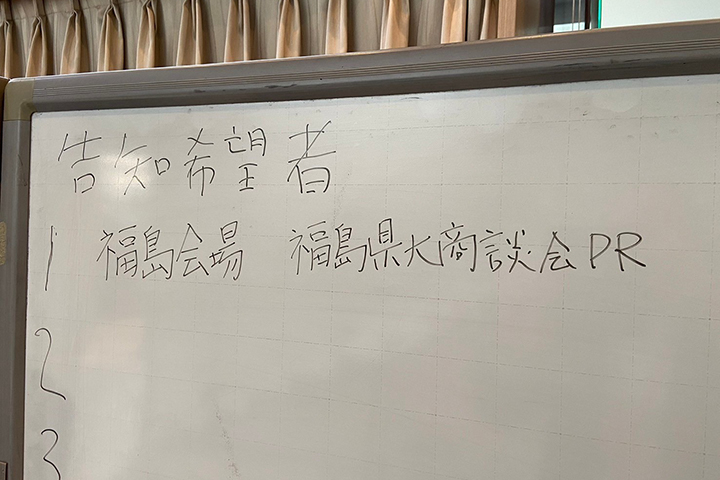 告知希望者
1 福島会場 福島県大商談会PR
2
3